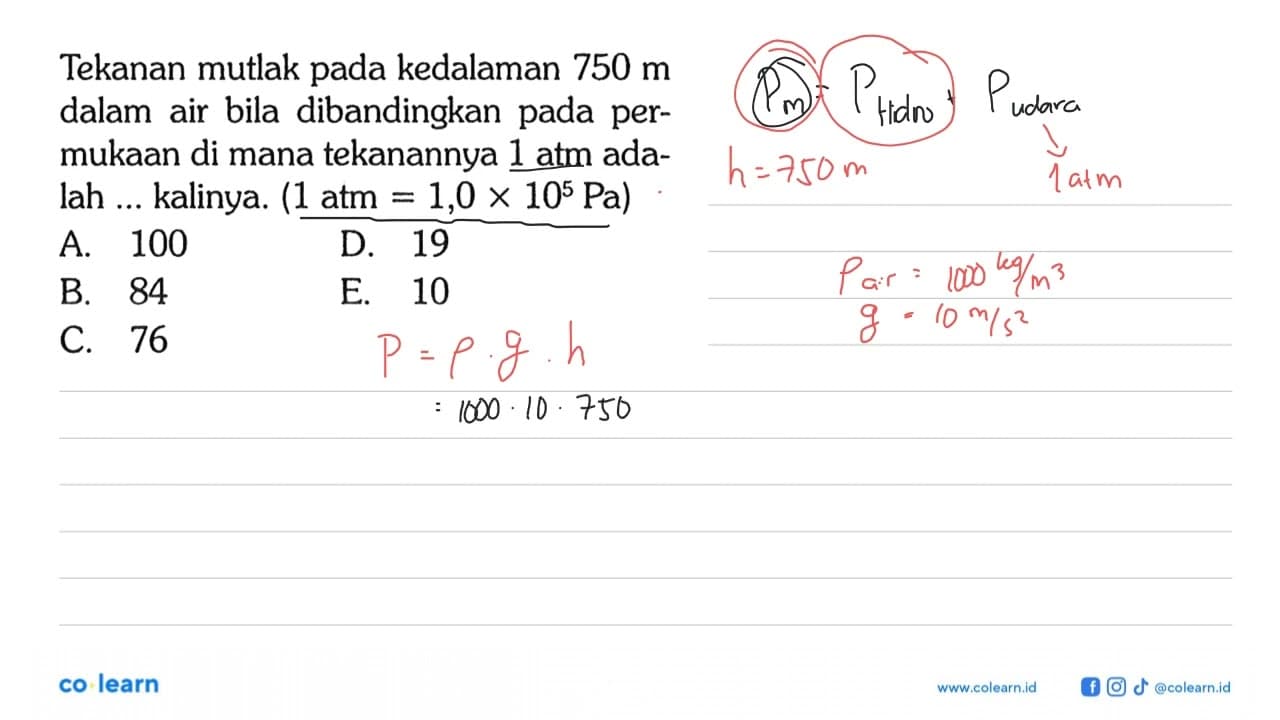 Tekanan mutlak pada kedalaman 750 m
dalam air bila dibandingkan pada per-
mukaan di mana tekanannya 1 atm ada-
lah ... kalinya. (1 atm = 1,0 × 10⁵ Pa)
A. 100 D. 19
B. 84 E. 10
C. 76
Pm = PHidro + Pudara
h = 750 m
1 atm
ρair = 1000 kg/m³
g = 10 m/s²
P = ρ . g . h
= 1000 . 10 . 750
co learn
www.colearn.id
@colearn.id